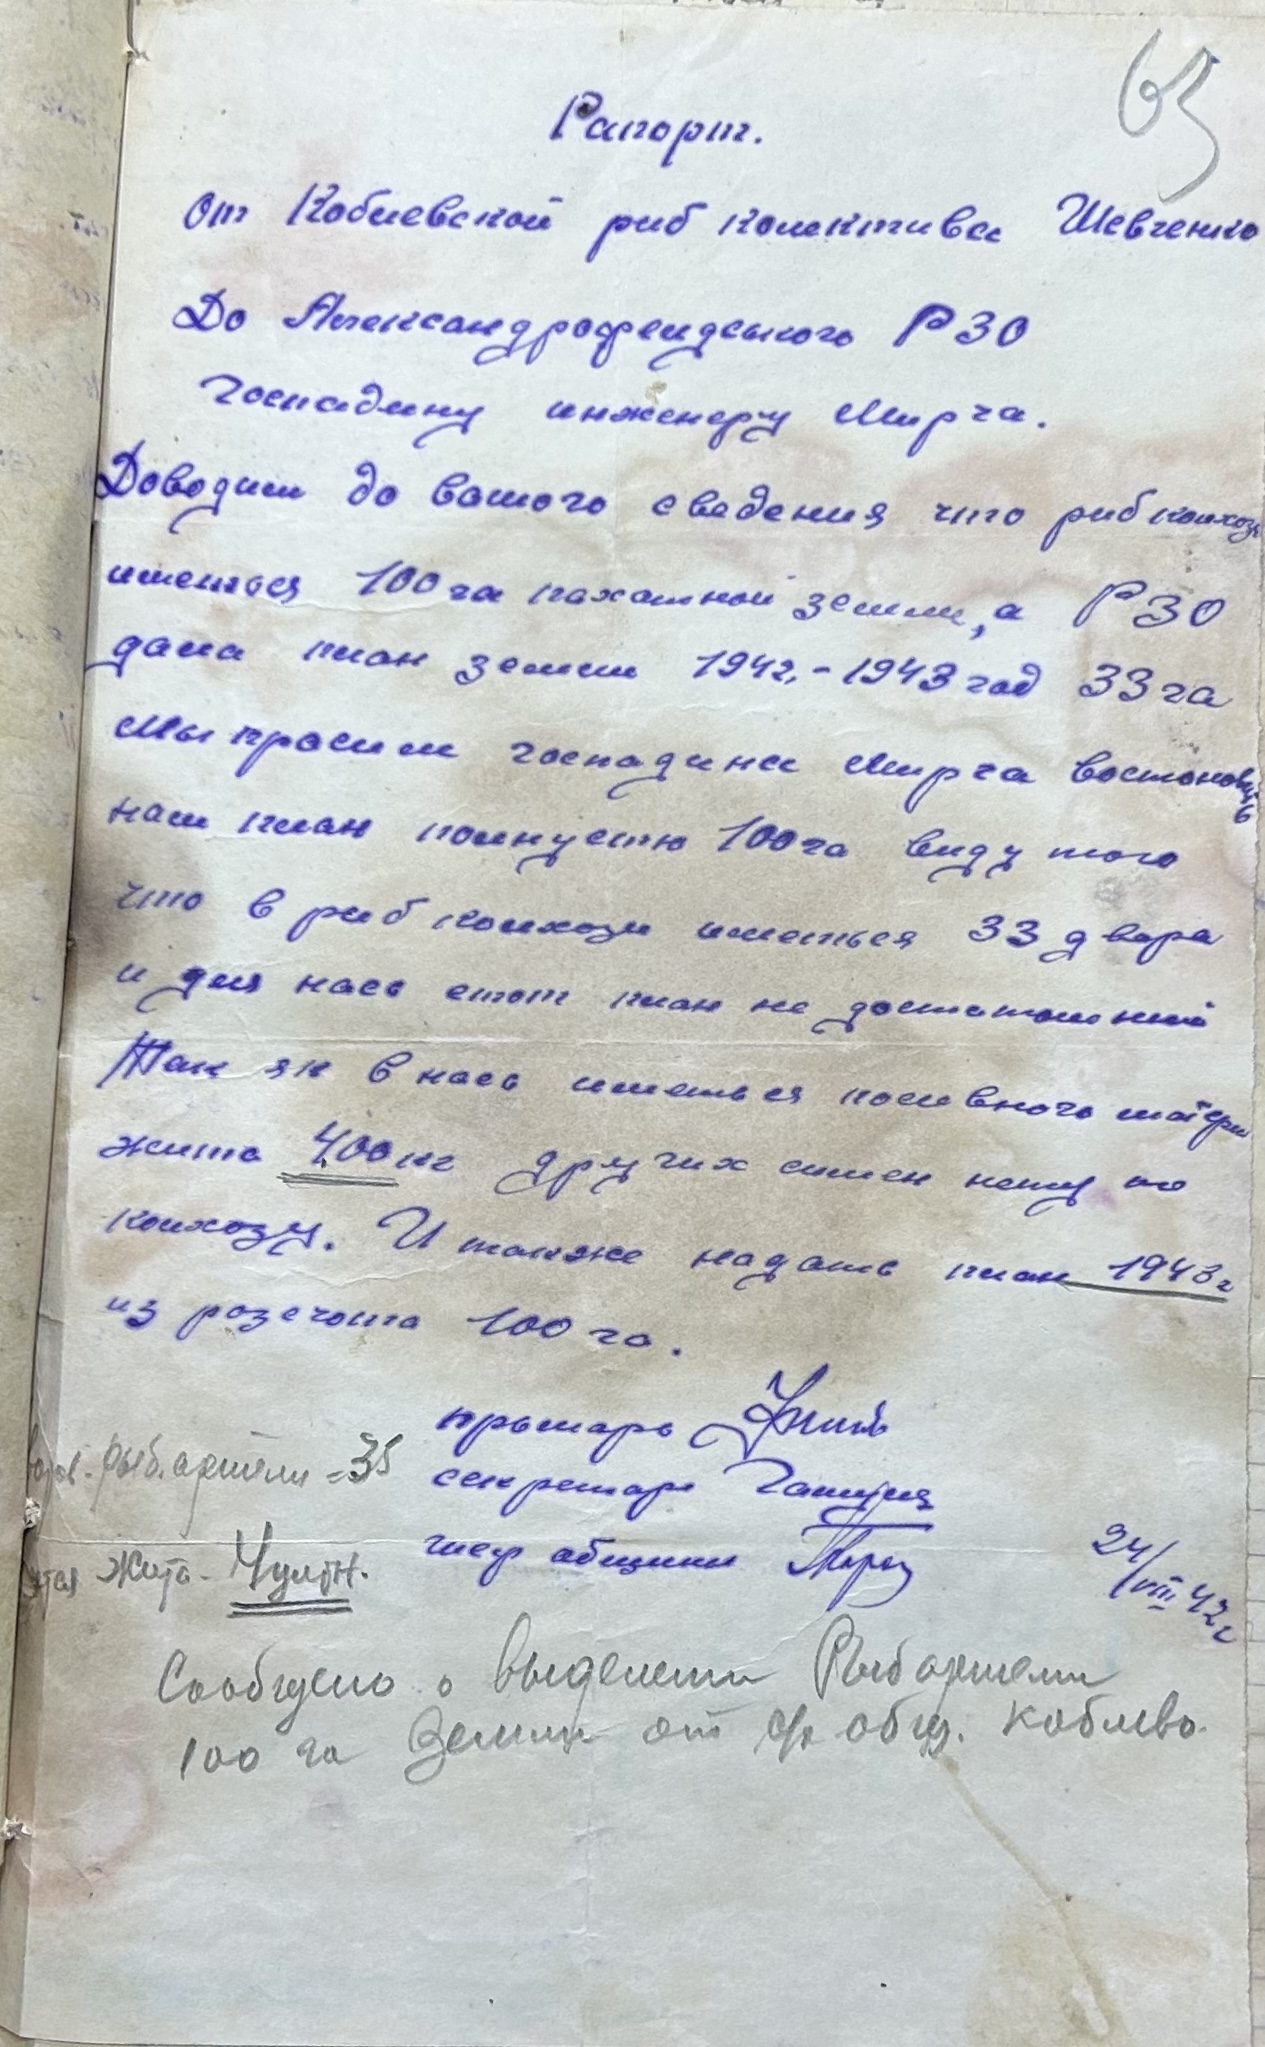 63
Рапорт.
От Коблевской риб колектива Шевченко
До Александрофелдського РЗО
Господину инженеру Мирча.
Доводим до вашого сведения что рибколхозе
иметься 100 га пахатной земли, а РЗО
дала план земли 1942,-1943 год 33 га
Мы просим господина Мирча востоновить
наш план полнустю 100 га виду того
что в риб колхози иметься 33 двора
и для нась етот план не достаточний
Так як в нась иметься посивного матери
жита 400 кг других симен нету по
колхозу. И также надать план 1943 г
из розечота 100 га.
прымарь
секретарь
шеф общини Мороз
24/VIII 42 г
рыб.артели - 35
жита -
Сообщено о выделении Рыбартели
100 га Земли от с/х общ. Коблево.